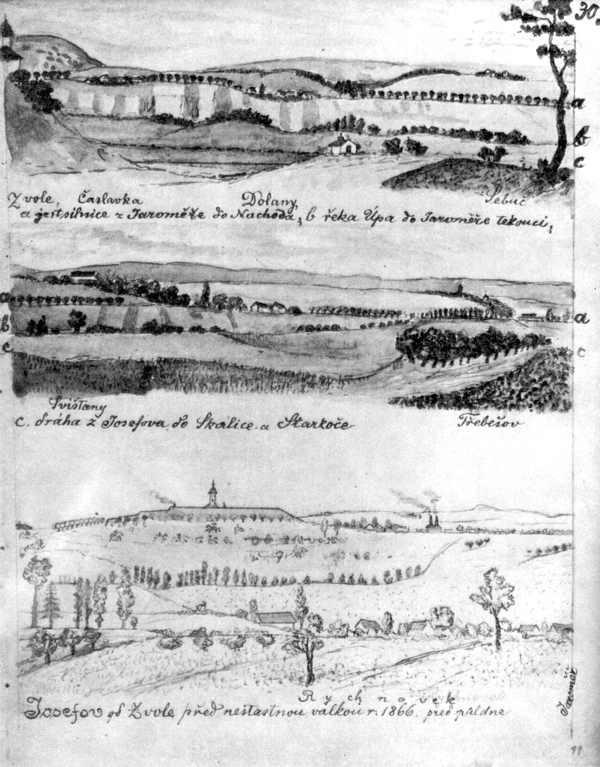 30.
a
b
c
Zvole, Časlavka Dolany Šebuč
a jest silnice z Jaroměře do Nachoda, b řeka Úpa do Jaroměře tekoucí,
a
b
c
a
c
Svišťany
c. dráha z Josefova do Skalice a Starkoče Třebešov
Rychnovek
Josefov od Zvole před nešťastnou válkou r. 1866. před půldne
Jaroměř